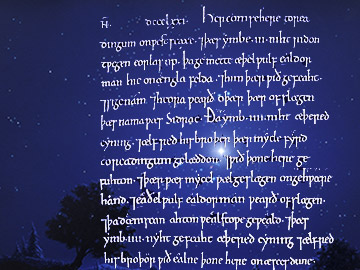 N̄. dccclxxi. Her com se here to rea
dingum on westseaxe. ⁊þæs ymbe .iii. niht ridon
twegen eorlas up. þa gemette æþelwulf ealdor
man hie on engla felda. ⁊him þær wið gefeaht.
⁊sige nam. ⁊heora wearð oþer þær ofslagen
þæs nama wæs Sidroc. Ða ymb .iiii. niht æþered
cyning. ⁊ælfred his broþor þær mycle fyrd
to readingum gelæddon. ⁊wið þone here ge
fuhton. ⁊þær wæs mycel wælgeslagen on gehwæþre
hand. ⁊eaðelwulf ealdorman wearð ofslagen.
⁊þa ahton wælstowe geweald. ⁊þæs
ymb .iiii. niht gefeaht æþered cyning ⁊ælfred
his broþor wið ealne þone here on æscesdune.